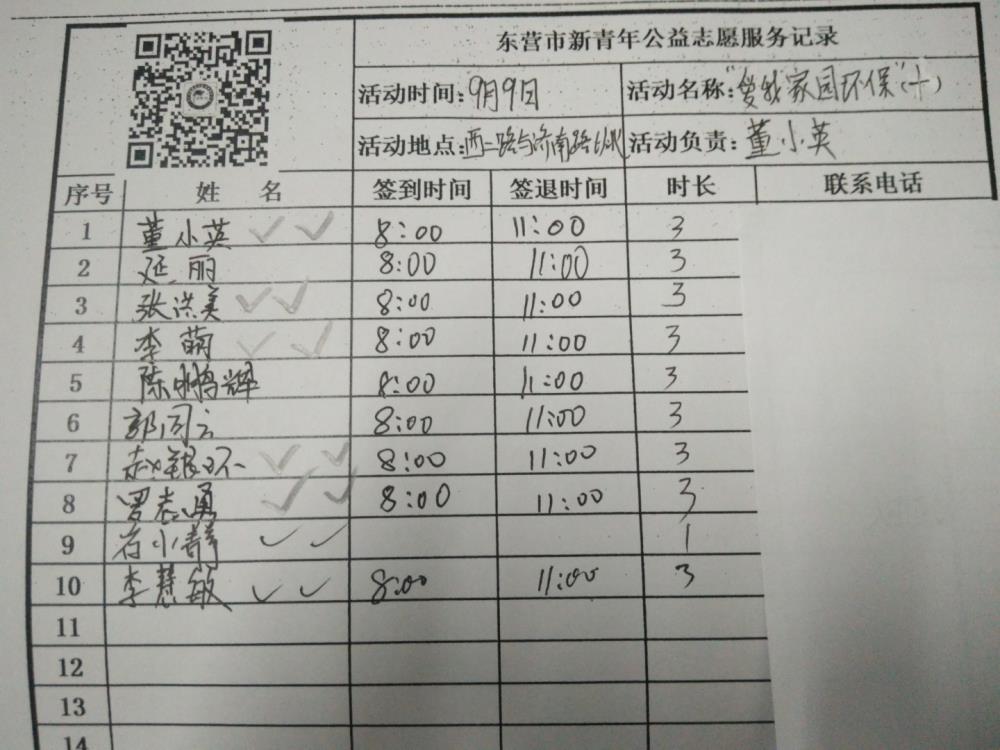 东营市新青年公益志愿服务记录
活动时间:9月9日 活动名称:"爱我家园环保"(十)
活动地点:西二路与济南路 活动负责:董小英
序号 姓 名 签到时间 签退时间 时长 联系电话
1 董小英 ✓ ✓ 8:00 11:00 3
2 延丽 8:00 11:00 3
3 张洪美 ✓ ✓ 8:00 11:00 3
4 李萌 ✓ ✓ 8:00 11:00 3
5 陈鹏辉 8:00 11:00 3
6 郭同云 8:00 11:00 3
7 赵银环 ✓ ✓ 8:00 11:00 3
8 罗志勇 ✓ ✓ 8:00 11:00 3
9 石小静 ✓ ✓ 1
10 李慧敏 ✓ ✓ 8:00 11:00 3
11
12
13
14